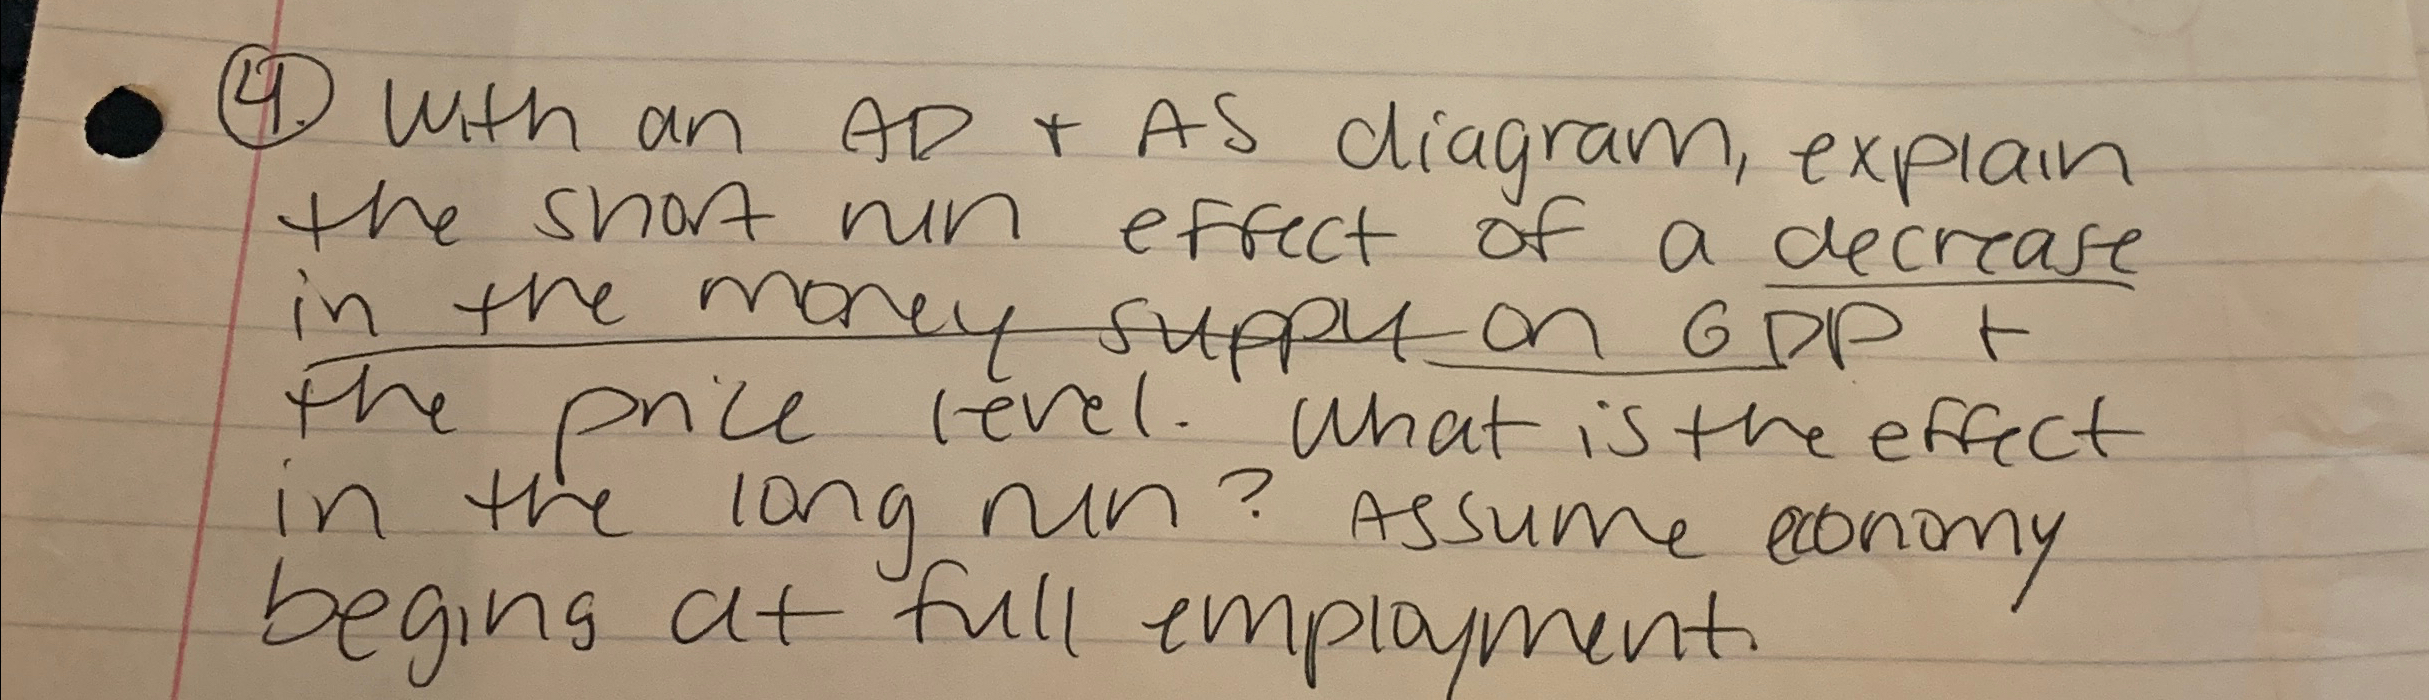 4. With an AD + AS diagram, explain
the short run effect of a decrease
in the money supply on GDP +
the price level. What is the effect
in the long run? Assume economy
begins at full employment.